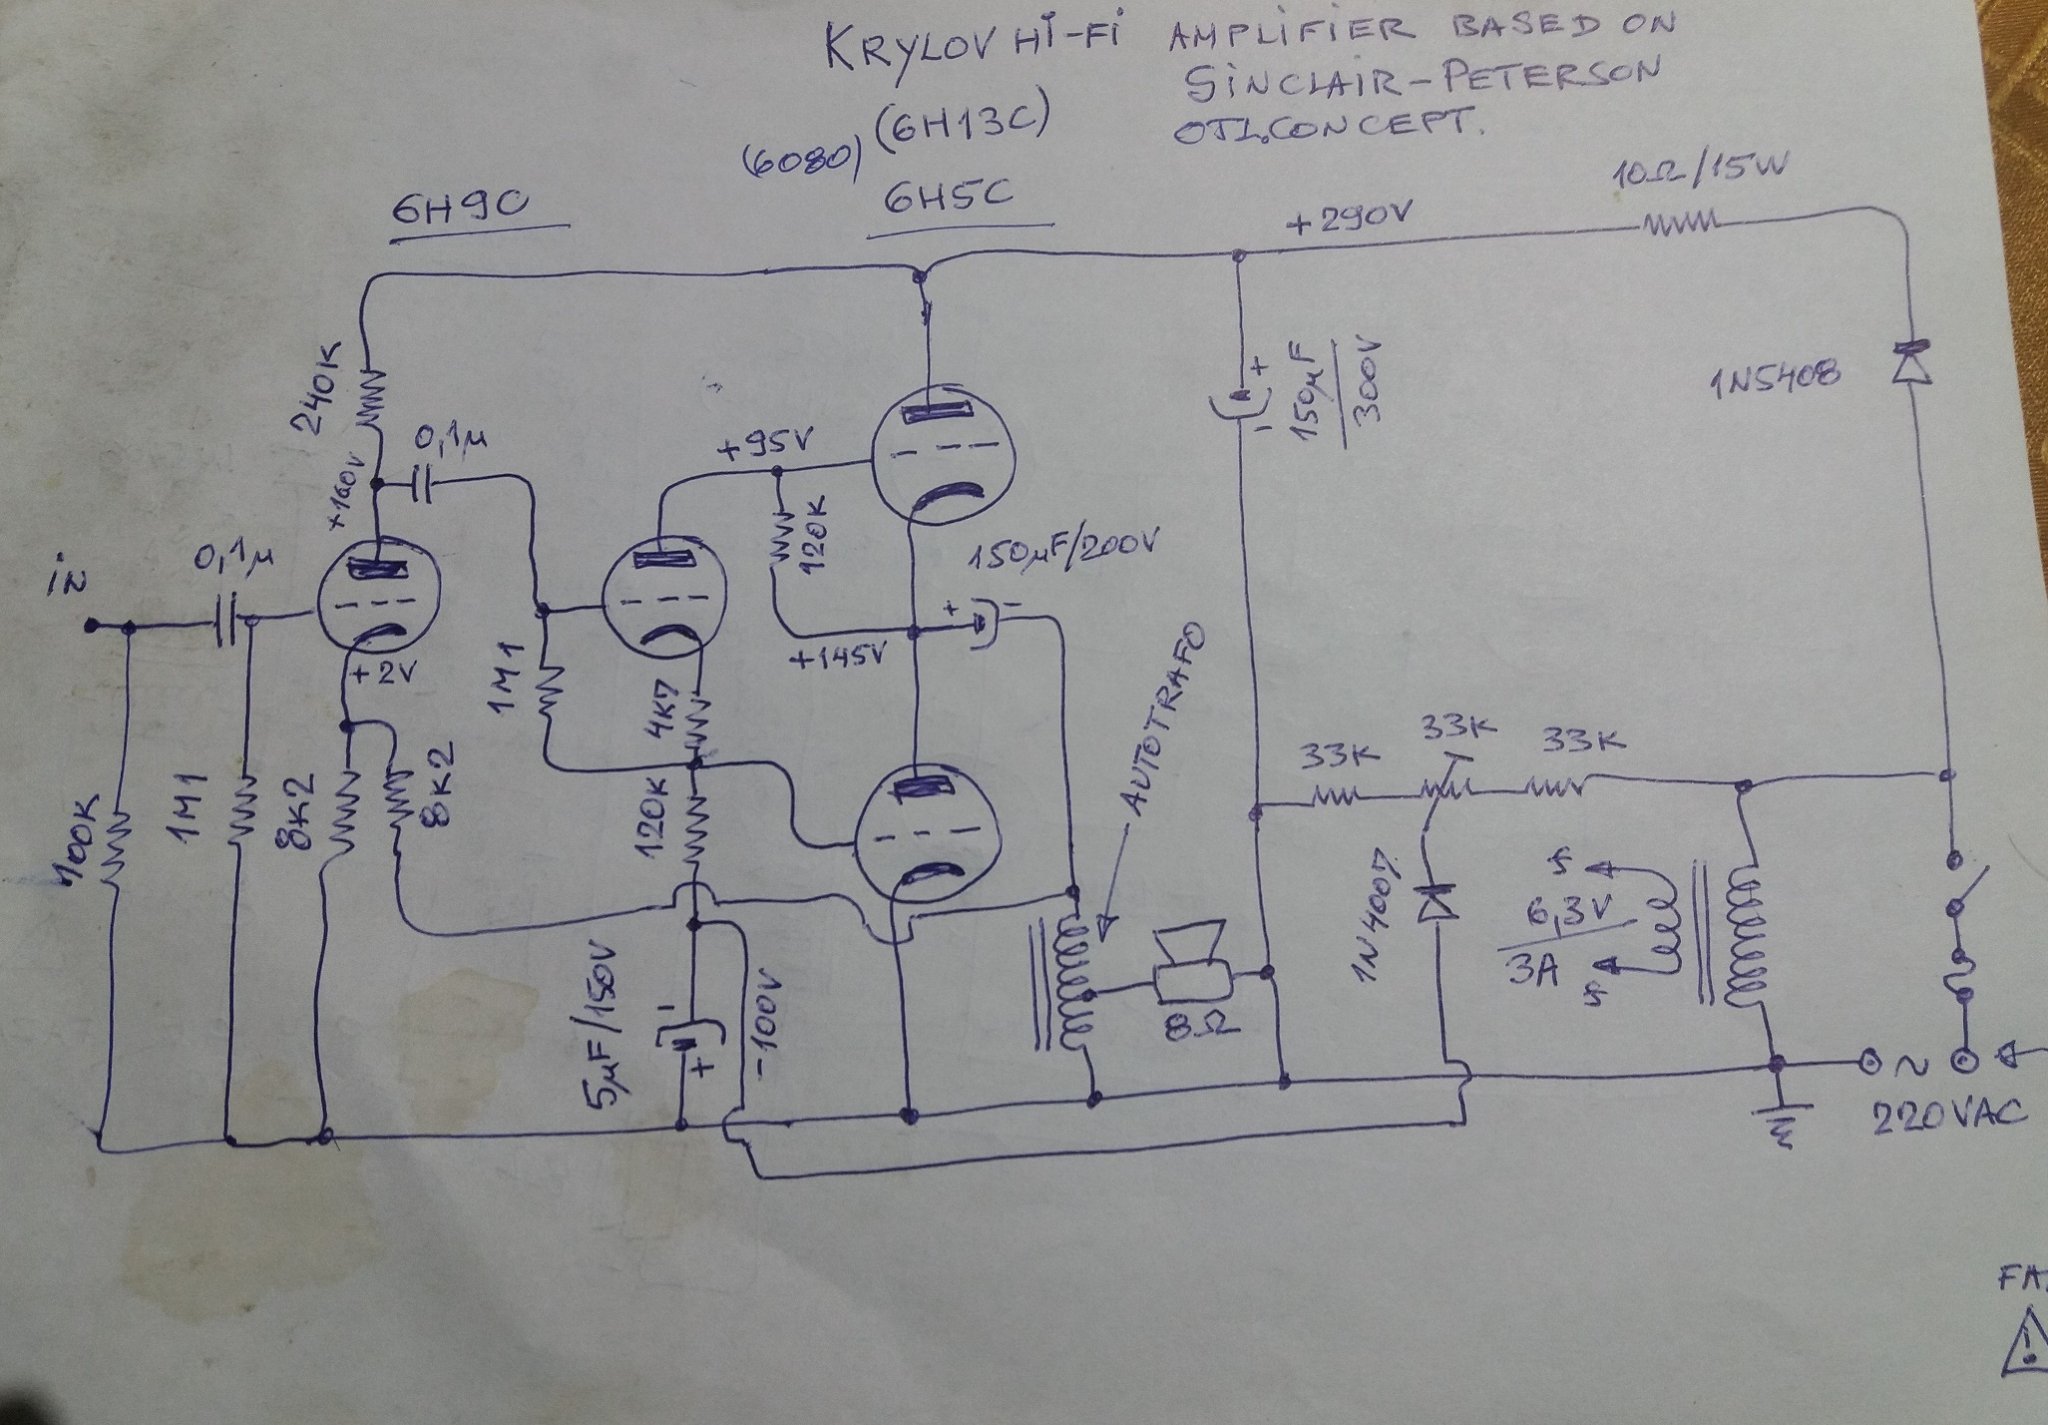 KRYLOV Hi-Fi AMPLIFIER BASED ON
SINCLAIR-PETERSON
OTL CONCEPT.
(6H13C)
(6080)
6H9C
6H5C
10Ω/15W
+290V
240K
0,1μ
+160V
+95V
120K
150μF
300V
1N5408
in
0,1μ
+2V
1M1
4K7
+145V
150μF/200V
AUTOTRAFO
33K
33K
33K
100K
1M1
8K2
8K2
120K
1N4007
f
6,3V
3A
f
5μF/150V
-100V
8Ω
~
220VAC
+
-
+
-
-
+
!